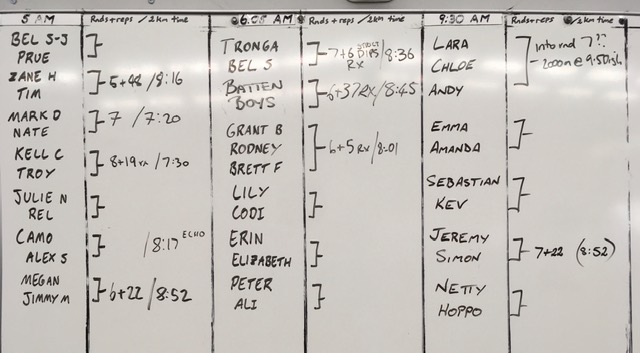 5 AM
Rnds+reps / 2km time
BEL S-J
PRUE
ZANE H
TIM
5+48 / 8:16
MARK D
NATE
7 / 7:20
KELL C
TROY
8+19 rx / 7:30
JULIE N
REL
CAMO
ALEX S
/ 8:17 ECHO
MEGAN
JIMMY M
6+22 / 8:52
6.05 AM
Rnds+reps / 2km time
TRONGA
BEL S
7+6 DIPS / 8:36
RX
BATTEN
BOYS
6+37RX / 8:45
GRANT B
RODNEY
BRETT F
6+5 RX / 8:01
LILY
CODI
ERIN
ELIZABETH
PETER
ALI
9:30 AM
Rnds+reps / 2km time
LARA
CHLOE
ANDY
into rnd 7!?
2000m @ 9:50
EMMA
AMANDA
SEBASTIAN
KEV
JEREMY
SIMON
7+22 (8:52)
NETTY
HOPPO